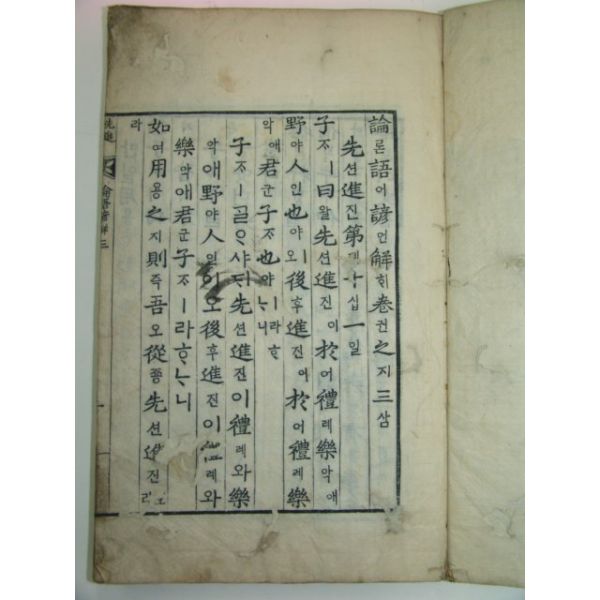 論론語어諺언解ᄒᆡ卷권之지三삼
先션進진第뎨十십一일
子ᄌᆞㅣ曰왈先션進진이於어禮례樂악애
野야人인也야ㅣ오後후進진이於어禮례
樂악애君군子ᄌᆞ也야ㅣ라ᄒᆞᄂᆞ니
子ᄌᆞㅣᄀᆞᆯᄋᆞ샤ᄃᆡ先션進진이禮례와樂
악애野야人인이오後후進진이禮례와
樂악애君군子ᄌᆞㅣ라ᄒᆞᄂᆞ니
如여用용之지則즉吾오從죵先션進진
라